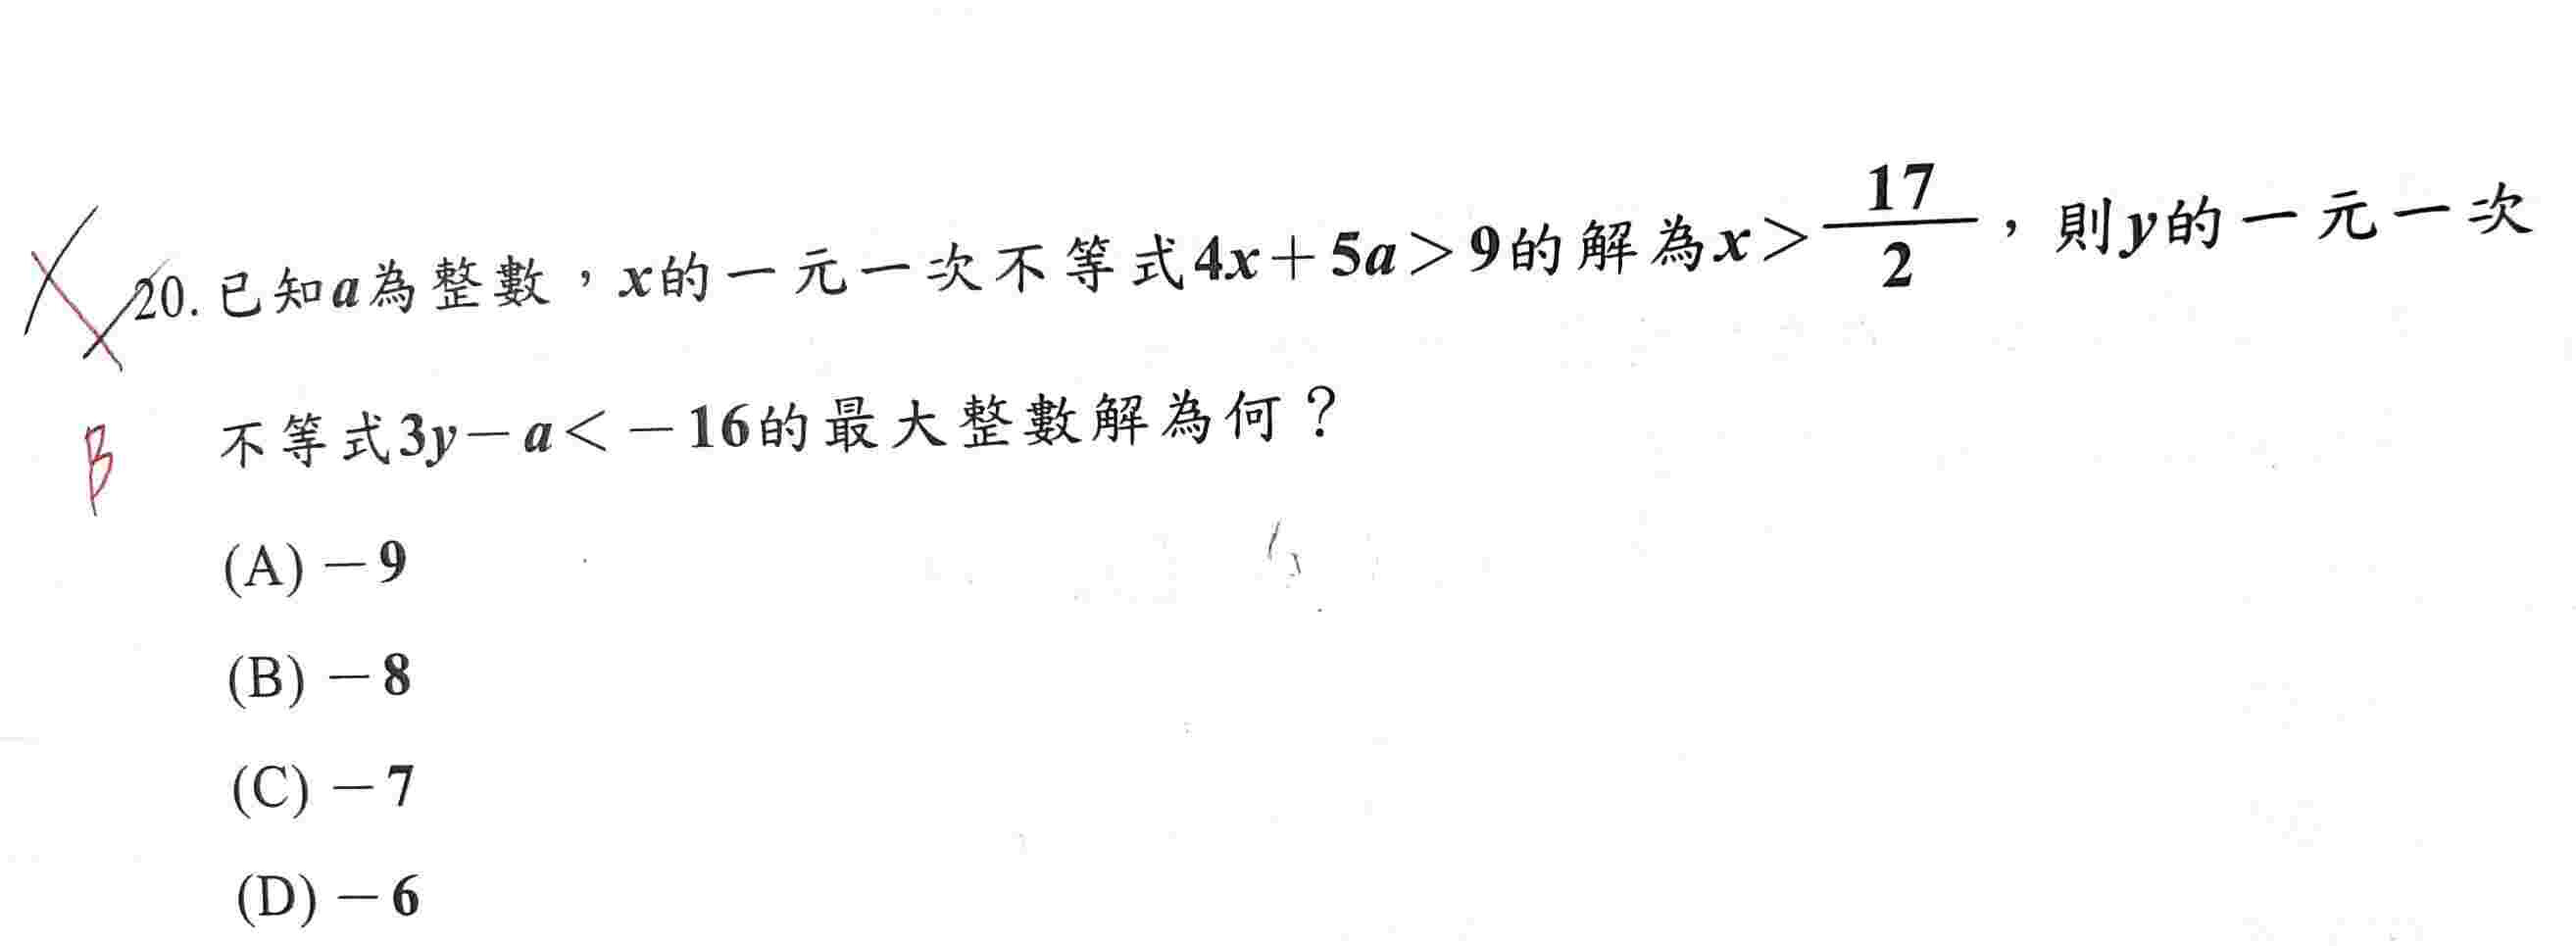 20. 已知a為整數，x的一元一次不等式4x＋5a＞9的解為x＞17/2，則y的一元一次
B 不等式3y－a＜－16的最大整數解為何？
(A)－9
(B)－8
(C)－7
(D)－6